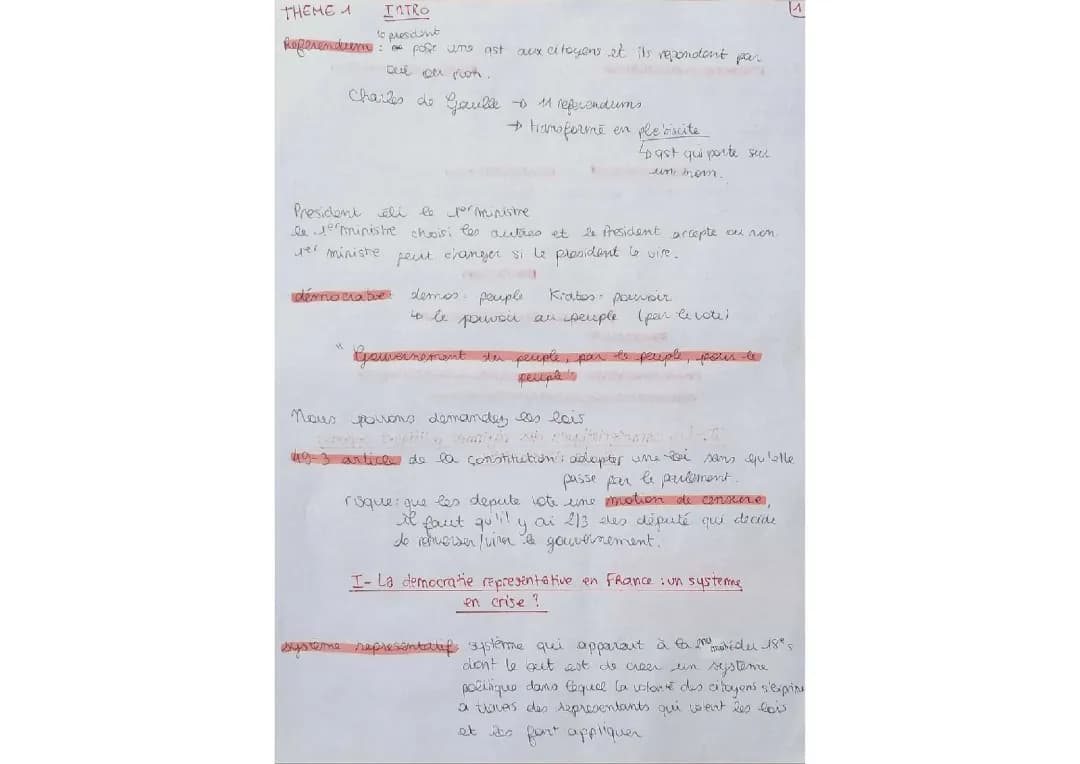 THEME 1 INTRO 1
le president
Referendum : pose une qst aux citoyens et ils repondent par
oui ou non.
Charles de Gaulle → 11 referendums
→ transformé en plebiscite
↳ qst qui porte sur
un nom.
President eli le 1er ministre
le 1er ministre choisi les autres et le President accepte ou non
1er ministe peut changer si le president le vire.
démocratie: demos: peuple Kratos: pouvoir
↳ le pouvoir au peuple (par le vote)
" Gouvernement du peuple, par le peuple, pour le
peuple"
Nous pouvons demandez les lois
49-3 article de la constitution: adopter une loi sans qu'elle
passe par le parlement.
risque: que les depute vote une motion de censure,
il faut qu'il y ai 2/3 des député qui decide
de renverser/virer le gouvernement.
I- La democratie representative en France : un systeme
en crise ?
système representatif: système qui apparait à la 2nd moitié du 18e s
dont le but est de creer un système
politique dans lequel la volonté des citoyens s'exprime
à travers des representants qui votent les lois
et les font appliquer